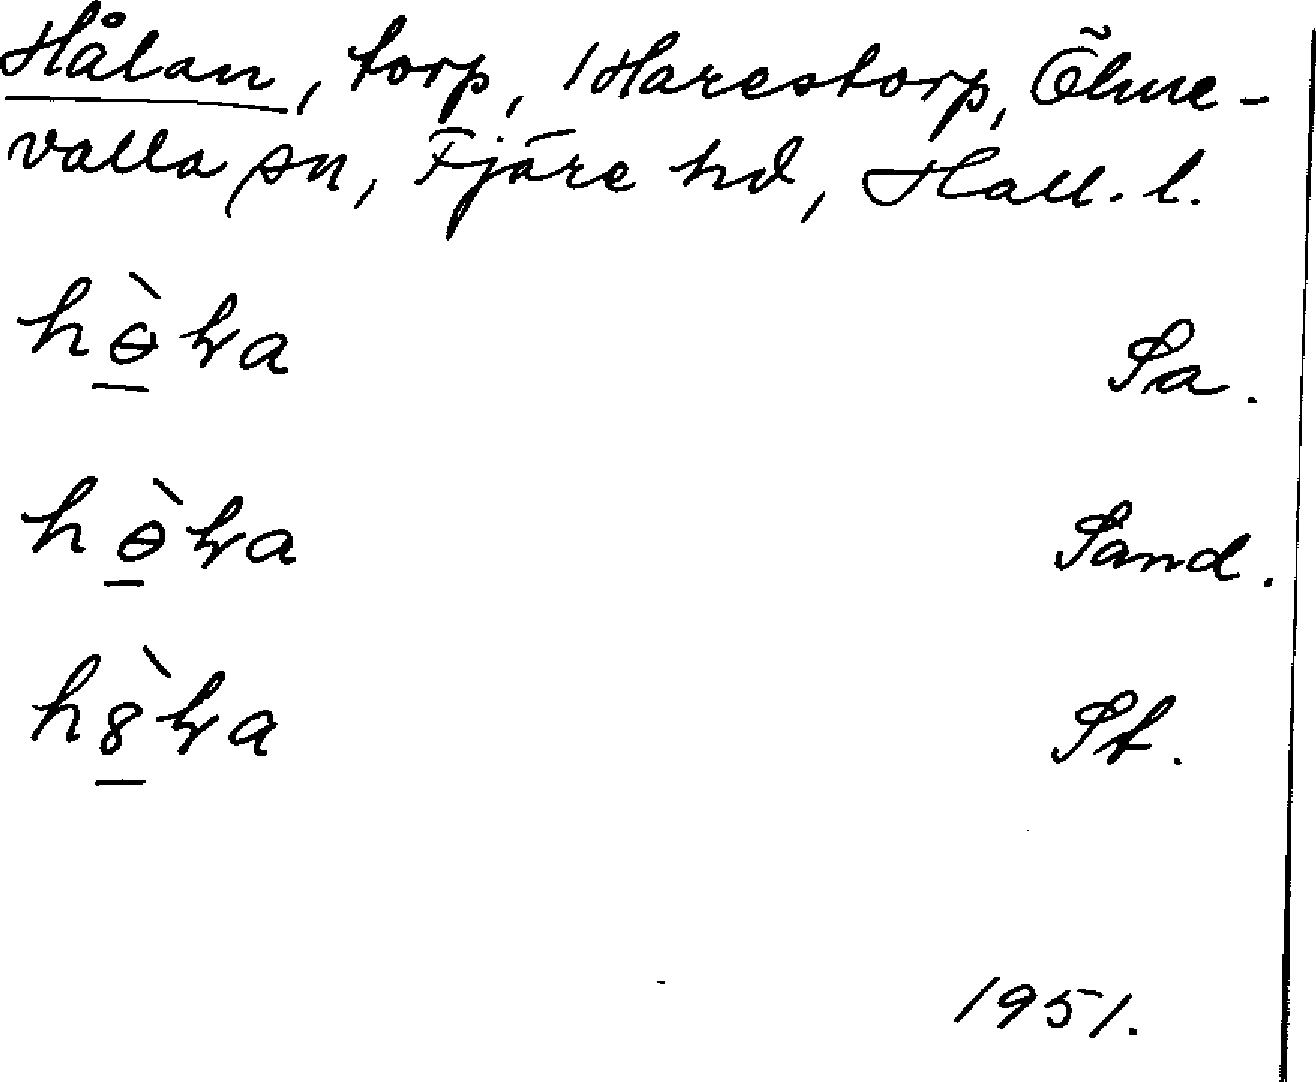 Hålan, torp, 1 Harestorp, Ölme-
valla sn, Fjäre hd, Hall. l.
hɵ̲̀ɫa Sa.
hɵ̲̀ɫa Sand.
h8̲̀ɫa St.
1951.